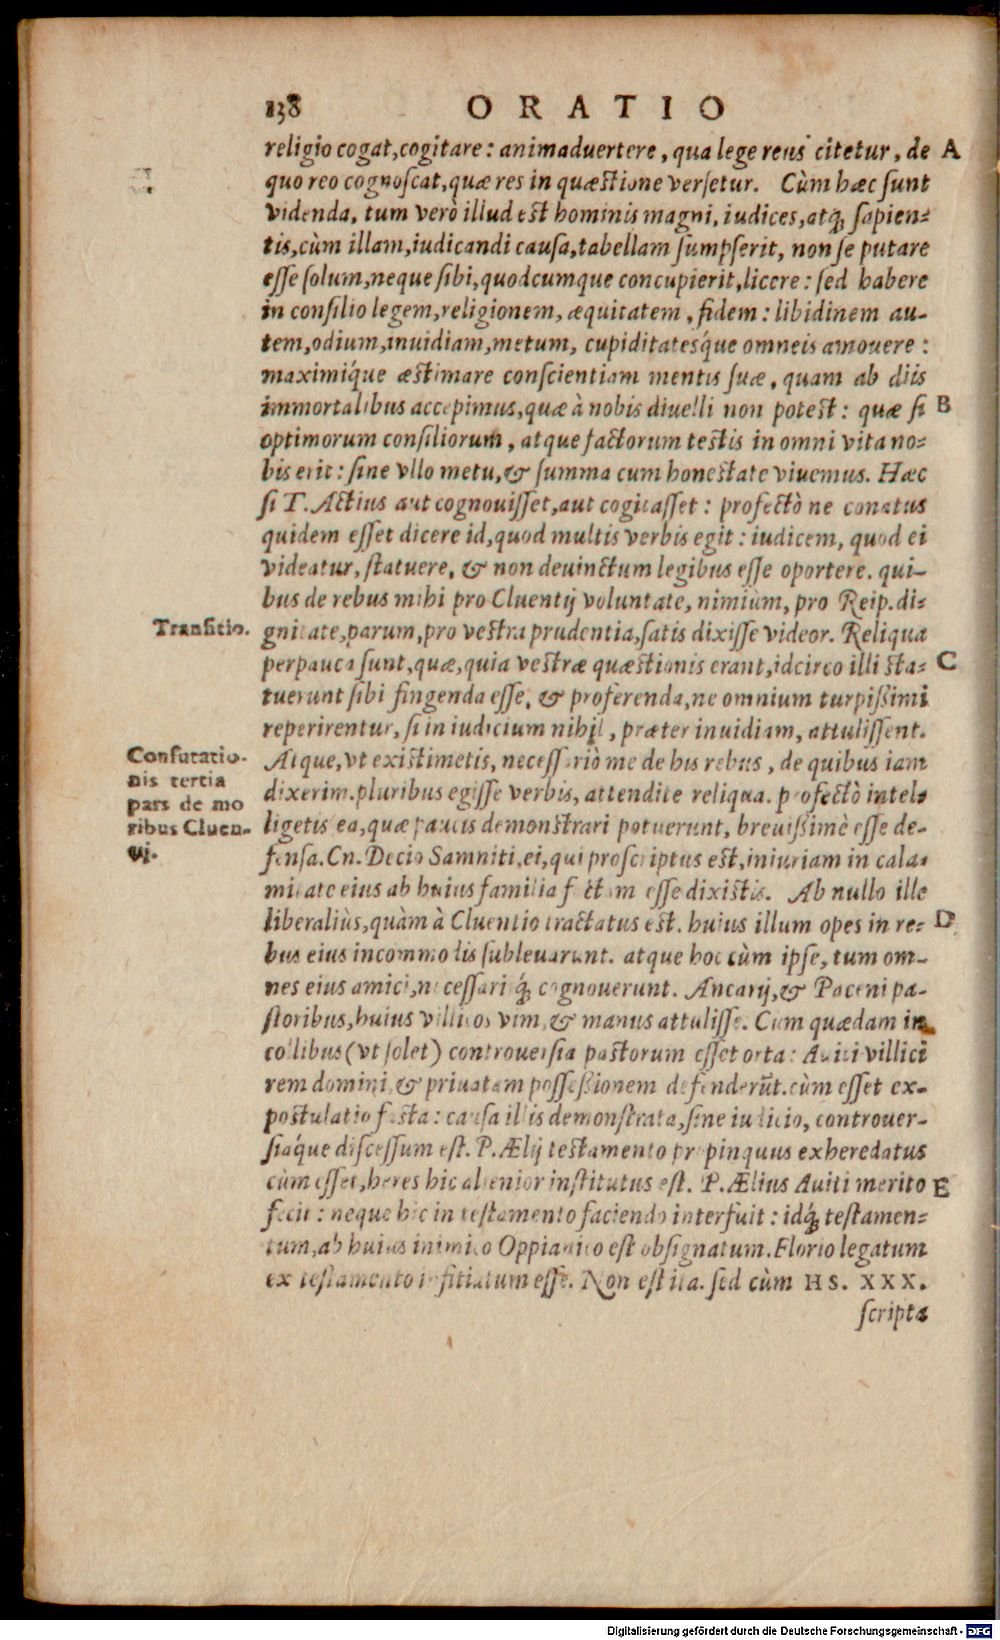 138 ORATIO
religio cogat, cogitare: animaduertere, qua lege reus citetur, de A
quo reo cognoscat, quæ res in quæstione versetur. Cùm hæc sunt
videnda, tum verò illud est hominis magni, iudices, atq́; sapien=
tis, cùm illam, iudicandi causa, tabellam sumpserit, non se putare
esse solum, neque sibi, quodcumque concupierit, licere: sed habere
in consilio legem, religionem, æquitatem, fidem: libidinem au-
tem, odium, inuidiam, metum, cupiditatesq́ue omneis amouere:
maximiq́ue æstimare conscientiam mentis suæ, quam ab diis
immortalibus accepimus, quæ à nobis diuelli non potest: quæ si B
optimorum consiliorum, atque factorum testis in omni vita no=
bis erit: sine vllo metu, & summa cum honestate viuemus. Hæc
si T. Actius aut cognouisset, aut cogitasset: profectò ne conatus
quidem esset dicere id, quod multis verbis egit: iudicem, quod ei
videatur, statuere, & non deuinctum legibus esse oportere. qui-
bus de rebus mihi pro Cluentij voluntate, nimiùm, pro Reip. di=
Transitio. gnitate, parum, pro vestra prudentia, satis dixisse videor. Reliqua
perpauca sunt, quæ, quia vestræ quæstionis erant, idcirco illi sta= C
tuerunt sibi fingenda esse, & proferenda, ne omnium turpißimi
reperirentur, si in iudicium nihil, præter inuidiam, attulissent.
Confutatio-
nis tertia
pars de mo
ribus Cluen-
tij.
Atque, vt existimetis, necessariò me de his rebus, de quibus iam
dixerim. pluribus egisse verbis, attendite reliqua. profectò intel=
ligetis ea, quæ paucis demonstrari potuerunt, breuißimè esse de-
fensa. Cn. Decio Samniti, ei, qui proscriptus est, iniuriam in cala=
mitate eius ab huius familia factam esse dixistis. Ab nullo ille
liberaliùs, quàm à Cluentio tractatus est. huius illum opes in re= D
bus eius incommodis subleuarunt. atque hoc cùm ipse, tum om-
nes eius amici, necessariiq́; cognouerunt. Ancarij, & Paceni pa-
storibus, huius villicos vim, & manus attulisse. Cùm quædam in
collibus (vt solet) controuersia pastorum esset orta: Auiti villici
rem domini, & priuatam possessionem defenderūt. cùm esset ex-
postulatio facta: causa illis demonstrata, sine iudicio, controuer-
siaq́ue discessum est. P. Ælij testamento propinquus exheredatus
cùm esset, heres hic alienior institutus est. P. Ælius Auiti merito E
fecit: neque hic in testamento faciendo interfuit: idq́; testamen=
tum, ab huius inimico Oppianico est obsignatum. Florio legatum
ex testamento infitiatum esse. Non est ita. sed cùm HS. XXX.
scripta
Digitalisierung gefördert durch die Deutsche Forschungsgemeinschaft - DFG